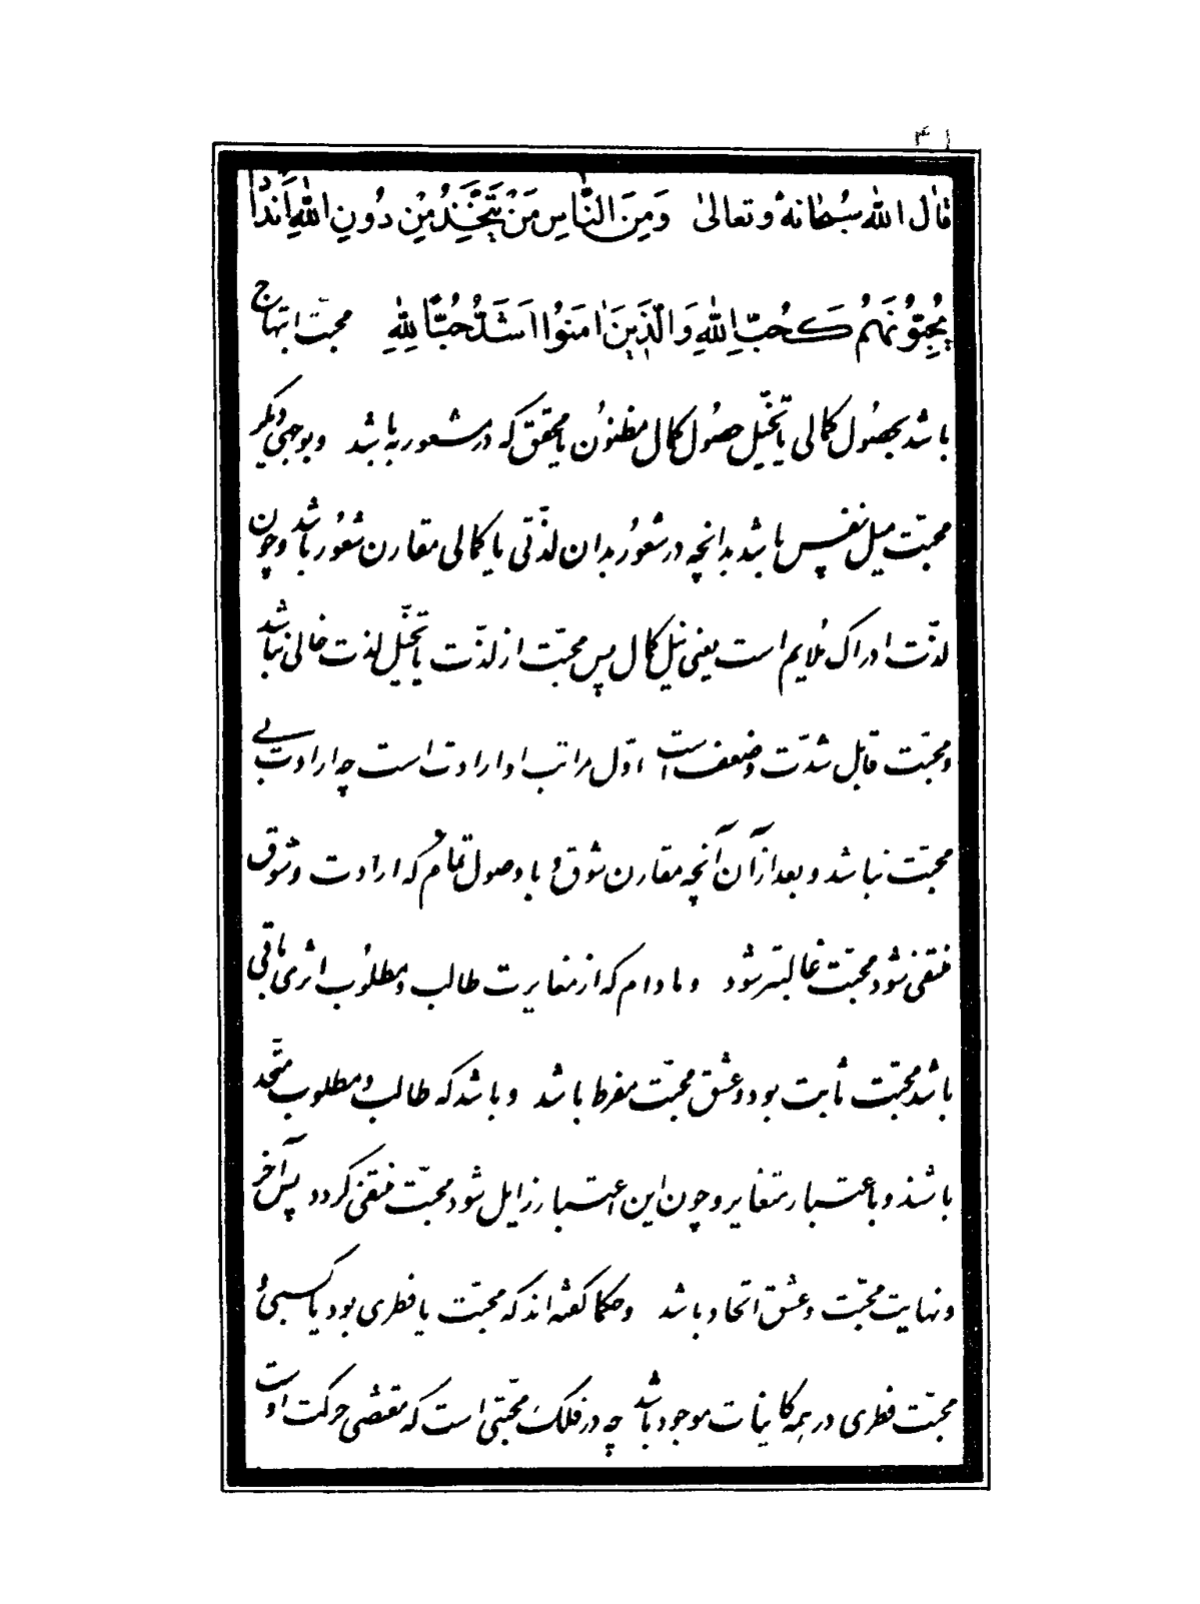 ۴۱
قال الله سبحانه وتعالی وَمِنَ النَّاسِ مَنْ يَتَّخِذُ مِنْ دُونِ اللهِ اَندادًا
يُحِبُّونَهُمْ كَحُبِّ اللهِ وَالَّذِينَ اٰمَنُوا اَشَدُّ حُبًّا لِلّٰهِ محبّت ابتهاج
باشد بحصُول کمالی یا تخیّل حصُول کمال مظنُون یا محقق که در شعور به باشد و بوجهی دیگر
محبّت میل نفس باشد بدانچه در شعُور بدان لذّتی یا کمالی مقارن شعُور باشد و چون
لذّت ادراک مُلایم است یعنی نیل کمال پس محبّت از لذّت یا تخیّل لذت خالی نباشد
و محبّت قابل شدّت و ضعف است اوّل مراتب او ارادت است چه ارادت بی
محبّت نباشد و بعد از آن آنچه مقارن شوق و با وصول تمام که ارادت و شوق
منتفی شود محبّت غالبتر شود و مادام که از مغایرت طالب و مطلوُب اثری باقی
باشد محبّت ثابت بود و عشق محبّت مفرط باشد و باشد که طالب و مطلوب متّحد
باشند و باعتبار متغایر و چون این اعتبار زایل شود محبّت منتفی گردد پس آخر
و نهایت محبّت و عشق اتحاد باشد و حکما گفته‌اند که محبّت یا فطری بود یا کسبی
محبّت فطری در همه کاینات موجود باشد چه در فلک محبّتی است که مقتضی حرکت اوست